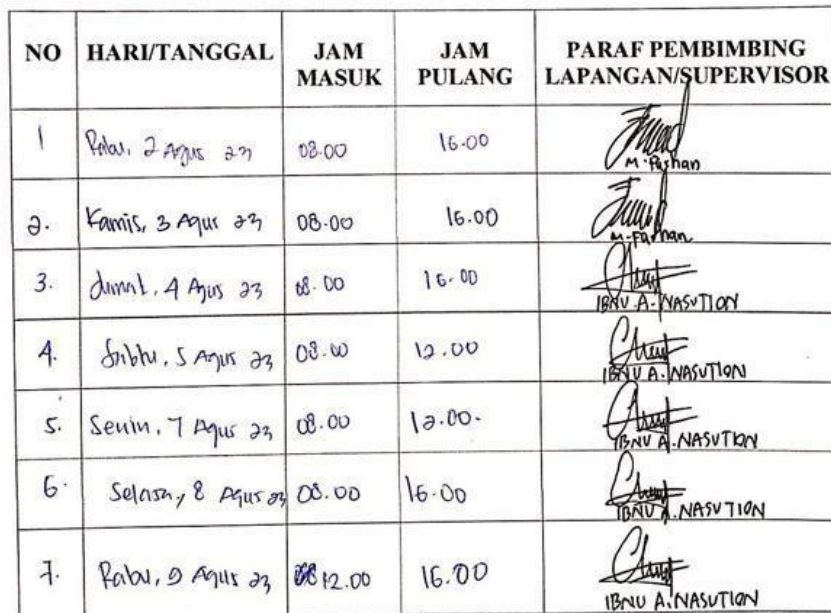 NO HARI/TANGGAL JAM MASUK JAM PULANG PARAF PEMBIMBING LAPANGAN/SUPERVISOR
1 Rabu, 2 Agus 23 08.00 16.00 M. Farhan
2. Kamis, 3 Agus 23 08.00 16.00 M. Farhan
3. Jumat, 4 Agus 23 08.00 16.00 IBNU A. NASUTION
4. Sabtu, 5 Agus 23 08.00 12.00 IBNU A. NASUTION
5. Senin, 7 Agus 23 08.00 12.00. IBNU A. NASUTION
6. Selasa, 8 Agus 23 08.00 16.00 IBNU A. NASUTION
7. Rabu, 9 Agus 23 12.00 16.00 IBNU A. NASUTION